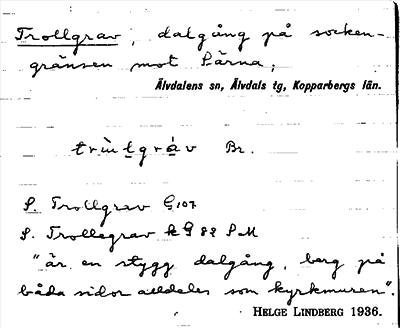 Trollgrav, dalgång på socken-
gränsen mot Särna;
Älvdalens sn, Älvdals tg, Kopparbergs län.
Br.
S. Trollgrav G 107
S. Trollegrav k G 82 S M
"är en stygg dalgång, berg på
båda sidor alldeles som kyrkmuren".
HELGE LINDBERG 1936.